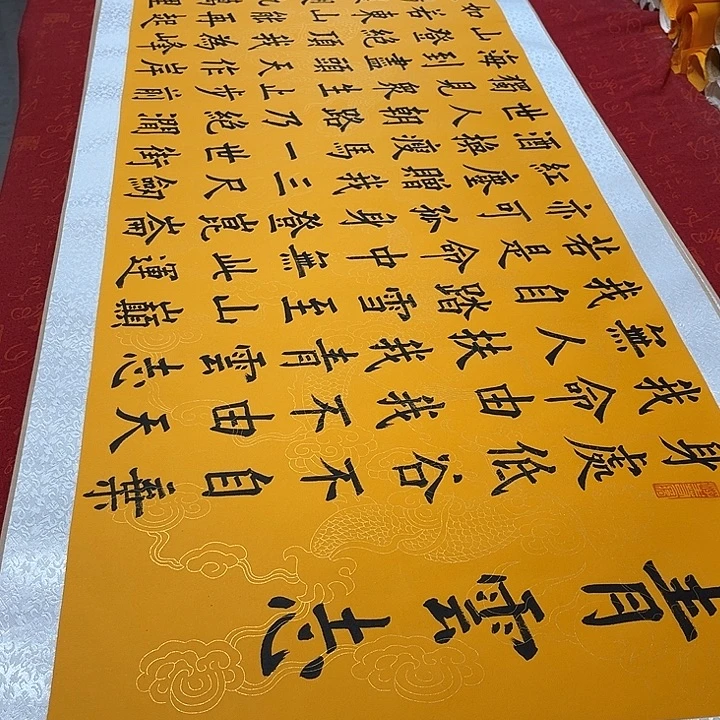 青雲志
身處低谷不自棄
我命由我不由天
無人扶我青雲志
我自踏雪至山巔
若是命中無此運
亦可孤身登崑崙
紅塵贈我三尺劍
酒換瘦馬一世街
世人朝路乃絕澗
獨見衆生止步前
海到盡頭天作岸
山登絕頂我為峰
如若東山能再起
九萬里